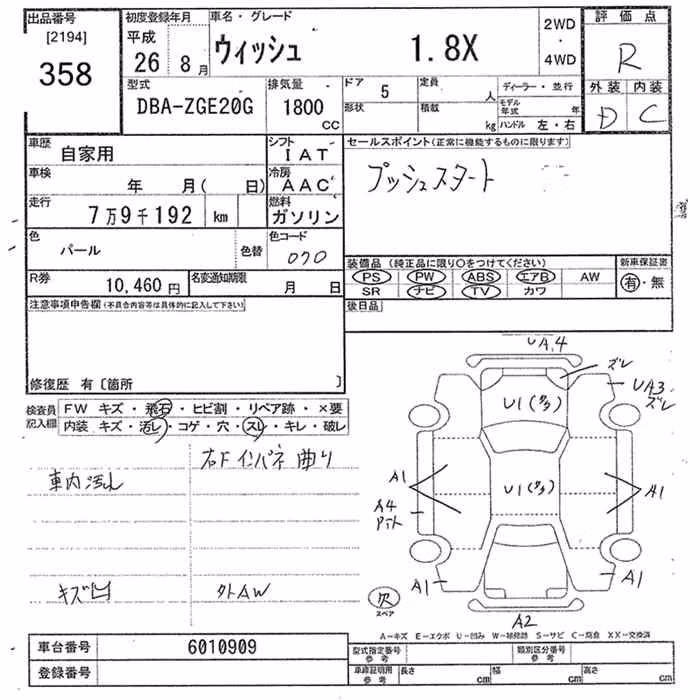 出品番号
[2194]
358
初度登録年月
平成
26 8月
車名・グレード
ウィッシュ 1.8X
2WD
・
4WD
評価点
R
外装 内装
D C
型式
DBA-ZGE20G
排気量
1800
CC
ドア 5
形状
定員 人
積載 kg
ディーラー・並行
モデル年式 年
ハンドル 左・右
車歴
自家用
シフト
IAT
車検
年 月( 日)
冷房
AAC
走行
7万9千192 km
燃料
ガソリン
色
パール
色替
色コード
070
R券
10,460円
名変通知期限
月 日
セールスポイント(正常に機能するものに限ります)
プッシュスタート
装備品(純正品に限り○をつけてください)
PS PW ABS エアB AW
SR ナビ TV カワ
新車保証書
有・無
後日品
注意事項申告欄(不具合内容等は具体的に記入して下さい)
修復歴 有〔箇所 〕
検査員記入欄
FW キズ・飛石・ヒビ割・リペア跡・×要
内装 キズ・汚レ・コゲ・穴・スレ・キレ・破レ
右Fインパネ曲り
車内汚れ
キズ凹
外AW
UA4
ズレ
UA3
ズレ
U1(多)
A1
U1(多)
A1
A4
A1
A1
欠
スペア
A2
A-キズ E-エクボ U-凹み W-補修跡 S-サビ C-腐食 XX-交換済
車台番号 6010909
登録番号
型式指定番号
参考
類別区分番号
参考
車庫証明用
参考
長さ cm 幅 cm 高さ cm